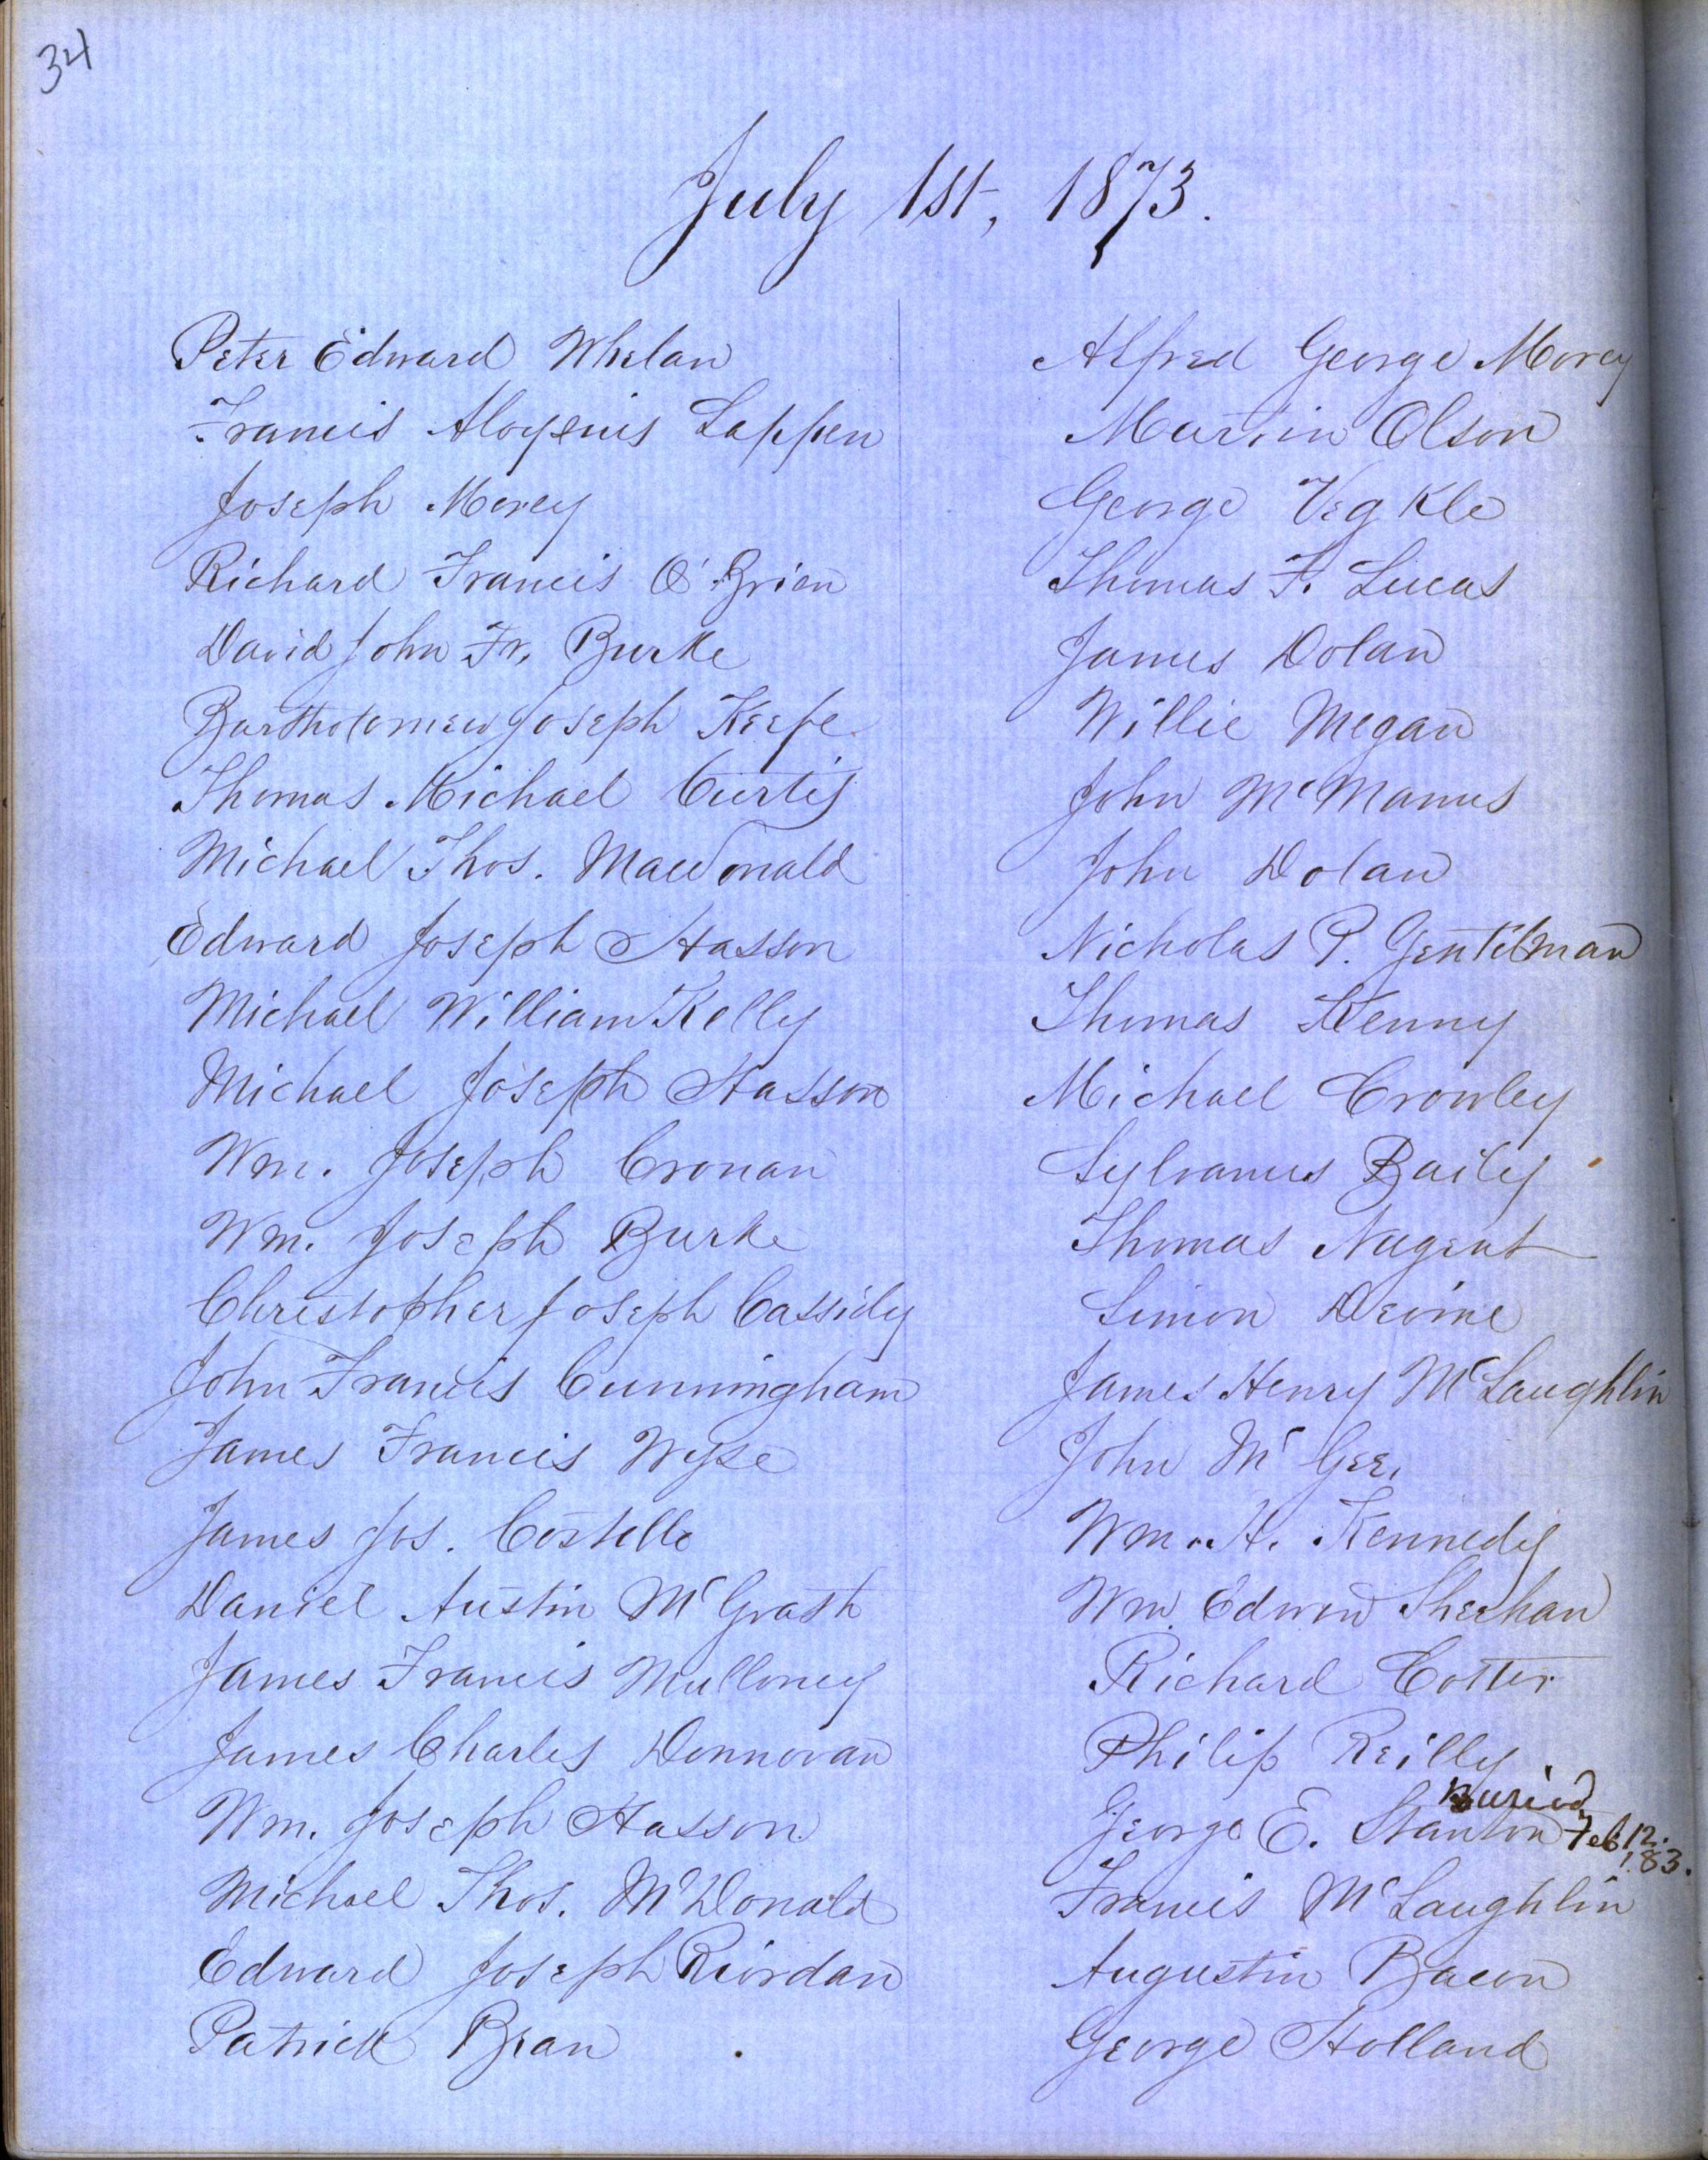 34
July 1st, 1873.
Peter Edward Whelan
Francis Aloysius Lappen
Joseph Morey
Richard Francis O'Brien
David John Fr. Burke
Bartholomew Joseph Keefe
Thomas Michael Curtis
Michael Thos. MacDonald
Edward Joseph Hasson
Michael William Kelly
Michael Joseph Hasson
Wm. Joseph Cronan
Wm. Joseph Burke
Christopher Joseph Cassidy
John Francis Cunningham
James Francis Wyse
James Jos. Costello
Daniel Austin McGrath
James Francis Mulloney
James Charles Donnovan
Wm. Joseph Hasson
Michael Thos. McDonald
Edward Joseph Riordan
Patrick Bean
Alfred George Morey
Martin Olson
George
Thomas F. Lucas
James Dolan
Willie Megan
John McManus
John Dolan
Nicholas P. Gentilman
Thomas Kenny
Michael Crowley
Sylvanus Baily
Thomas Nugent
Simon Devine
James Henry McLaughlin
John McGee.
Wm. H. Kennedy
Wm. Edwin Sheehan
Richard Cotter
Philip Reilly
George E. Stanton Buried Feb. 12. '83.
Francis McLaughlin
Augustin Bacon
George Holland